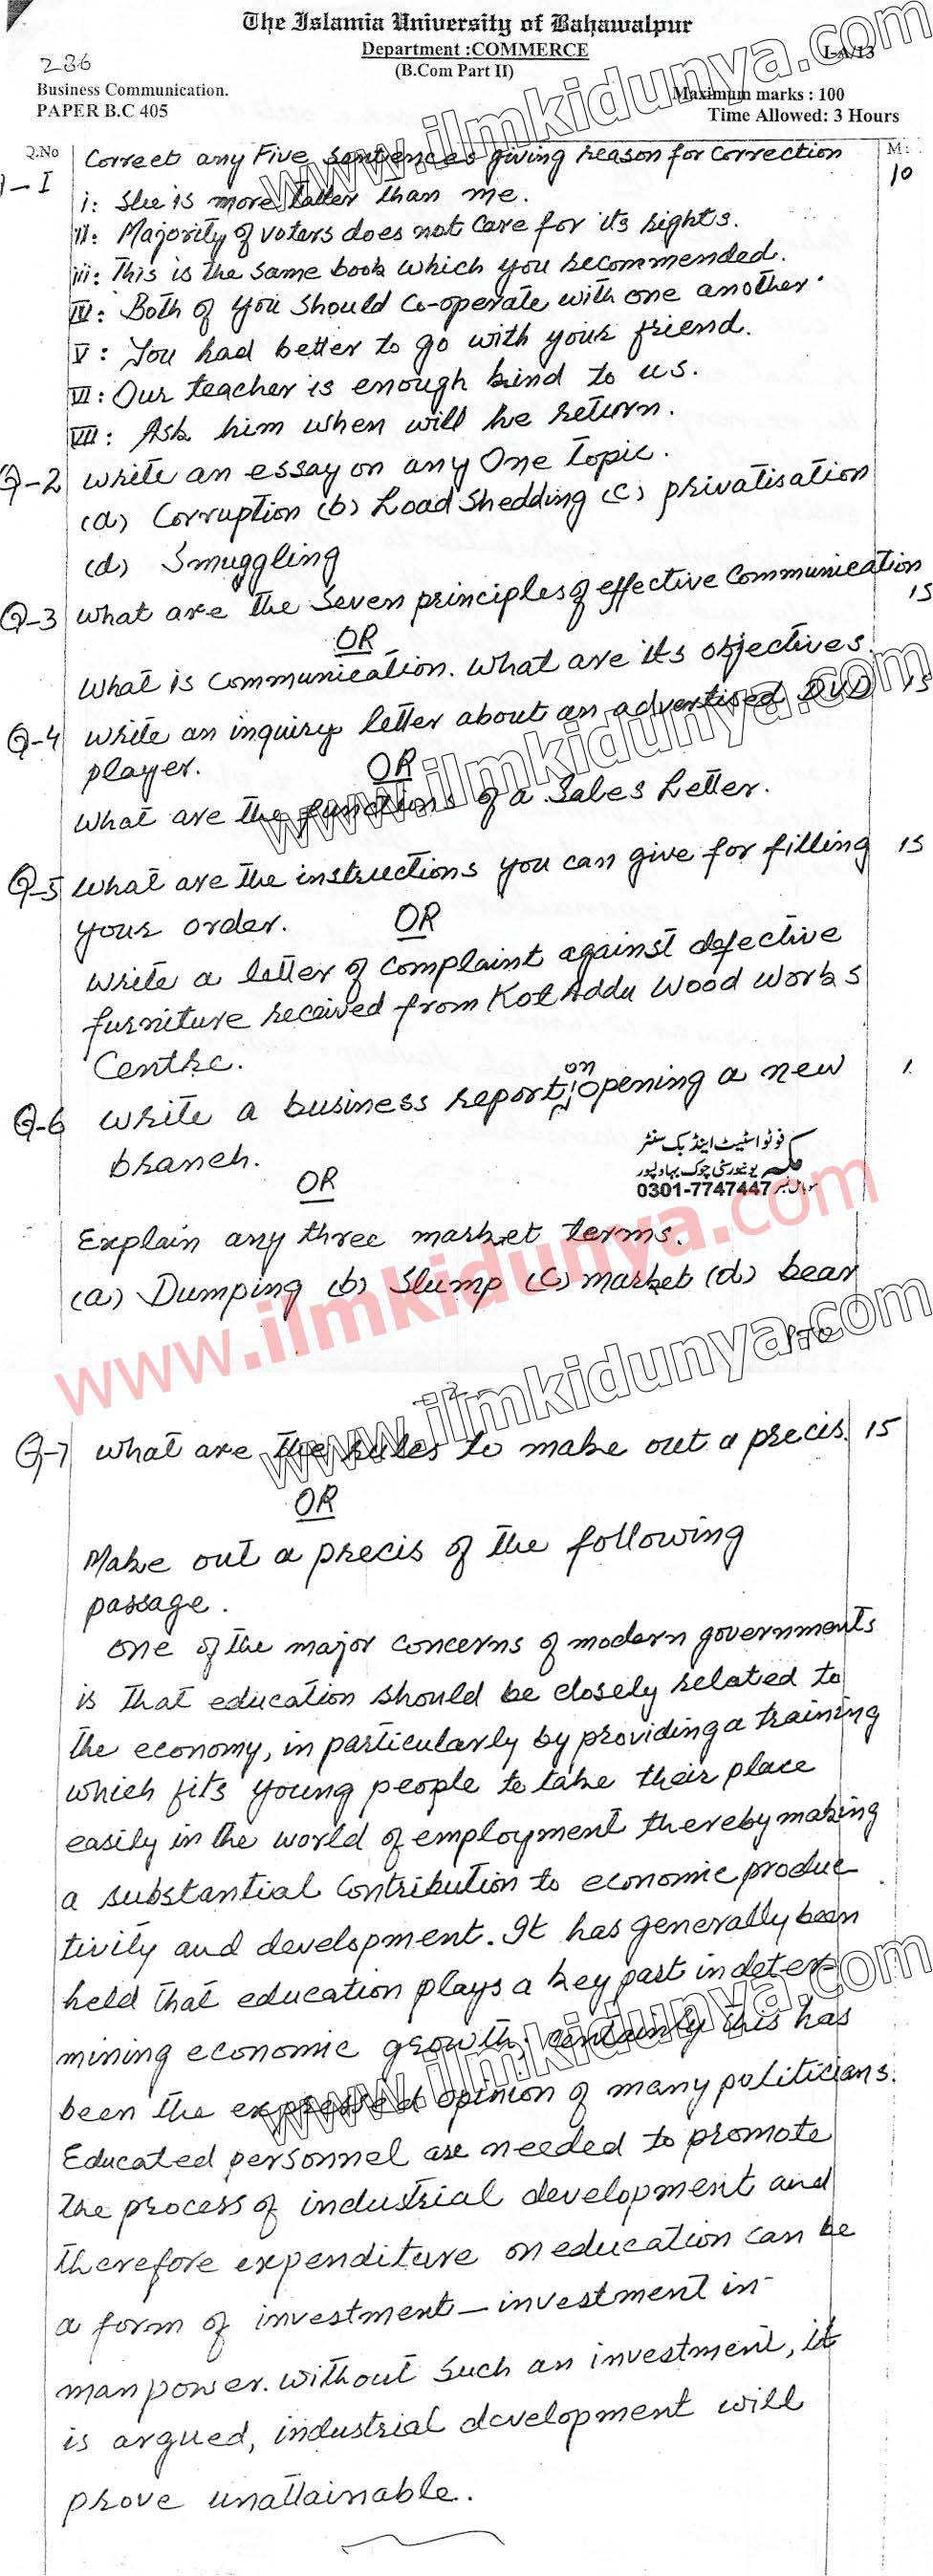 The Islamia University of Bahawalpur
Department :COMMERCE
(B.Com Part II)
I-A/13
286
Business Communication.
PAPER B.C 405
Maximum marks : 100
Time Allowed: 3 Hours
Q.No
M:
Q-I Correct any Five sentences giving reason for correction 10
i: She is more taller than me.
ii: Majority of voters does not care for its rights.
iii: This is the same book which you recommended.
IV: Both of you should co-operate with one another.
V: You had better to go with your friend.
VI: Our teacher is enough kind to us.
VII: Ask him when will he return.
Q-2 write an essay on any One topic.
(a) Corruption (b) Load Shedding (c) privatisation
(d) Smuggling
Q-3 What are the Seven principles of effective Communication 15
OR
What is communication. What are its objectives.
Q-4 write an inquiry letter about an advertised DVD 15
player.
OR
What are the functions of a Sales Letter.
Q-5 What are the instructions you can give for filling 15
your order.
OR
Write a letter of complaint against defective
furniture received from Kot Addu Wood Works
Centre.
Q-6 write a business report on opening a new
branch.
فوٹو اسٹیٹ اینڈ بک سنٹر
مکہ یونیورسٹی چوک بہاولپور
موبائل نمبر 0301-7747447
OR
Explain any three market terms.
(a) Dumping (b) Slump (c) market (d) bear
PTO
-2-
Q-7 what are the rules to make out a precis. 15
OR
Make out a precis of the following
passage.
One of the major concerns of modern governments
is that education should be closely related to
the economy, in particularly by providing a training
which fits young people to take their place
easily in the world of employment thereby making
a substantial contribution to economic produc
tivity and development. It has generally been
held that education plays a key part in deter-
mining economic growth; certainly this has
been the expressed opinion of many politicians.
Educated personnel are needed to promote
the process of industrial development and
therefore expenditure on education can be
a form of investment — investment in
man power. without such an investment, it
is argued, industrial development will
prove unattainable.
www.ilmkidunya.com
www.ilmkidunya.com
www.ilmkidunya.com
www.ilmkidunya.com
www.ilmkidunya.com